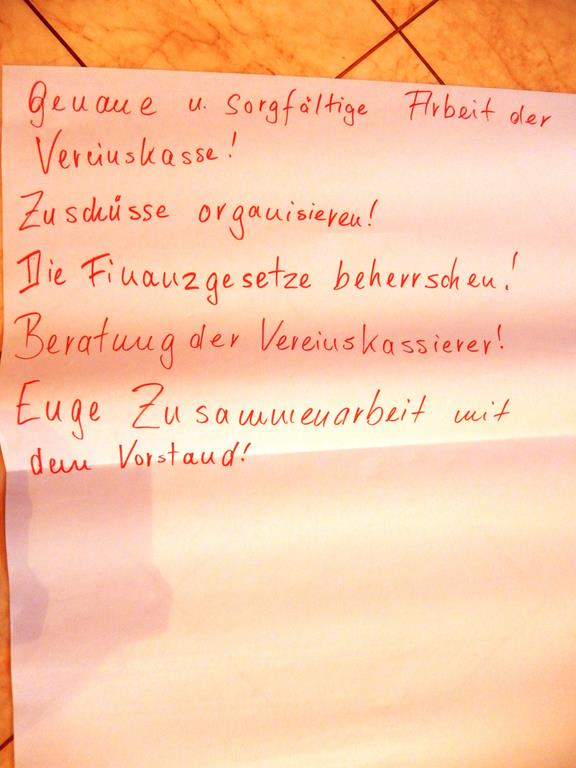 Genaue u. Sorgfältige Arbeit der
Vereinskasse!
Zuschüsse organisieren!
Die Finanzgesetze beherrschen!
Beratung der Vereinskassierer!
Enge Zusammenarbeit mit
dem Vorstand!